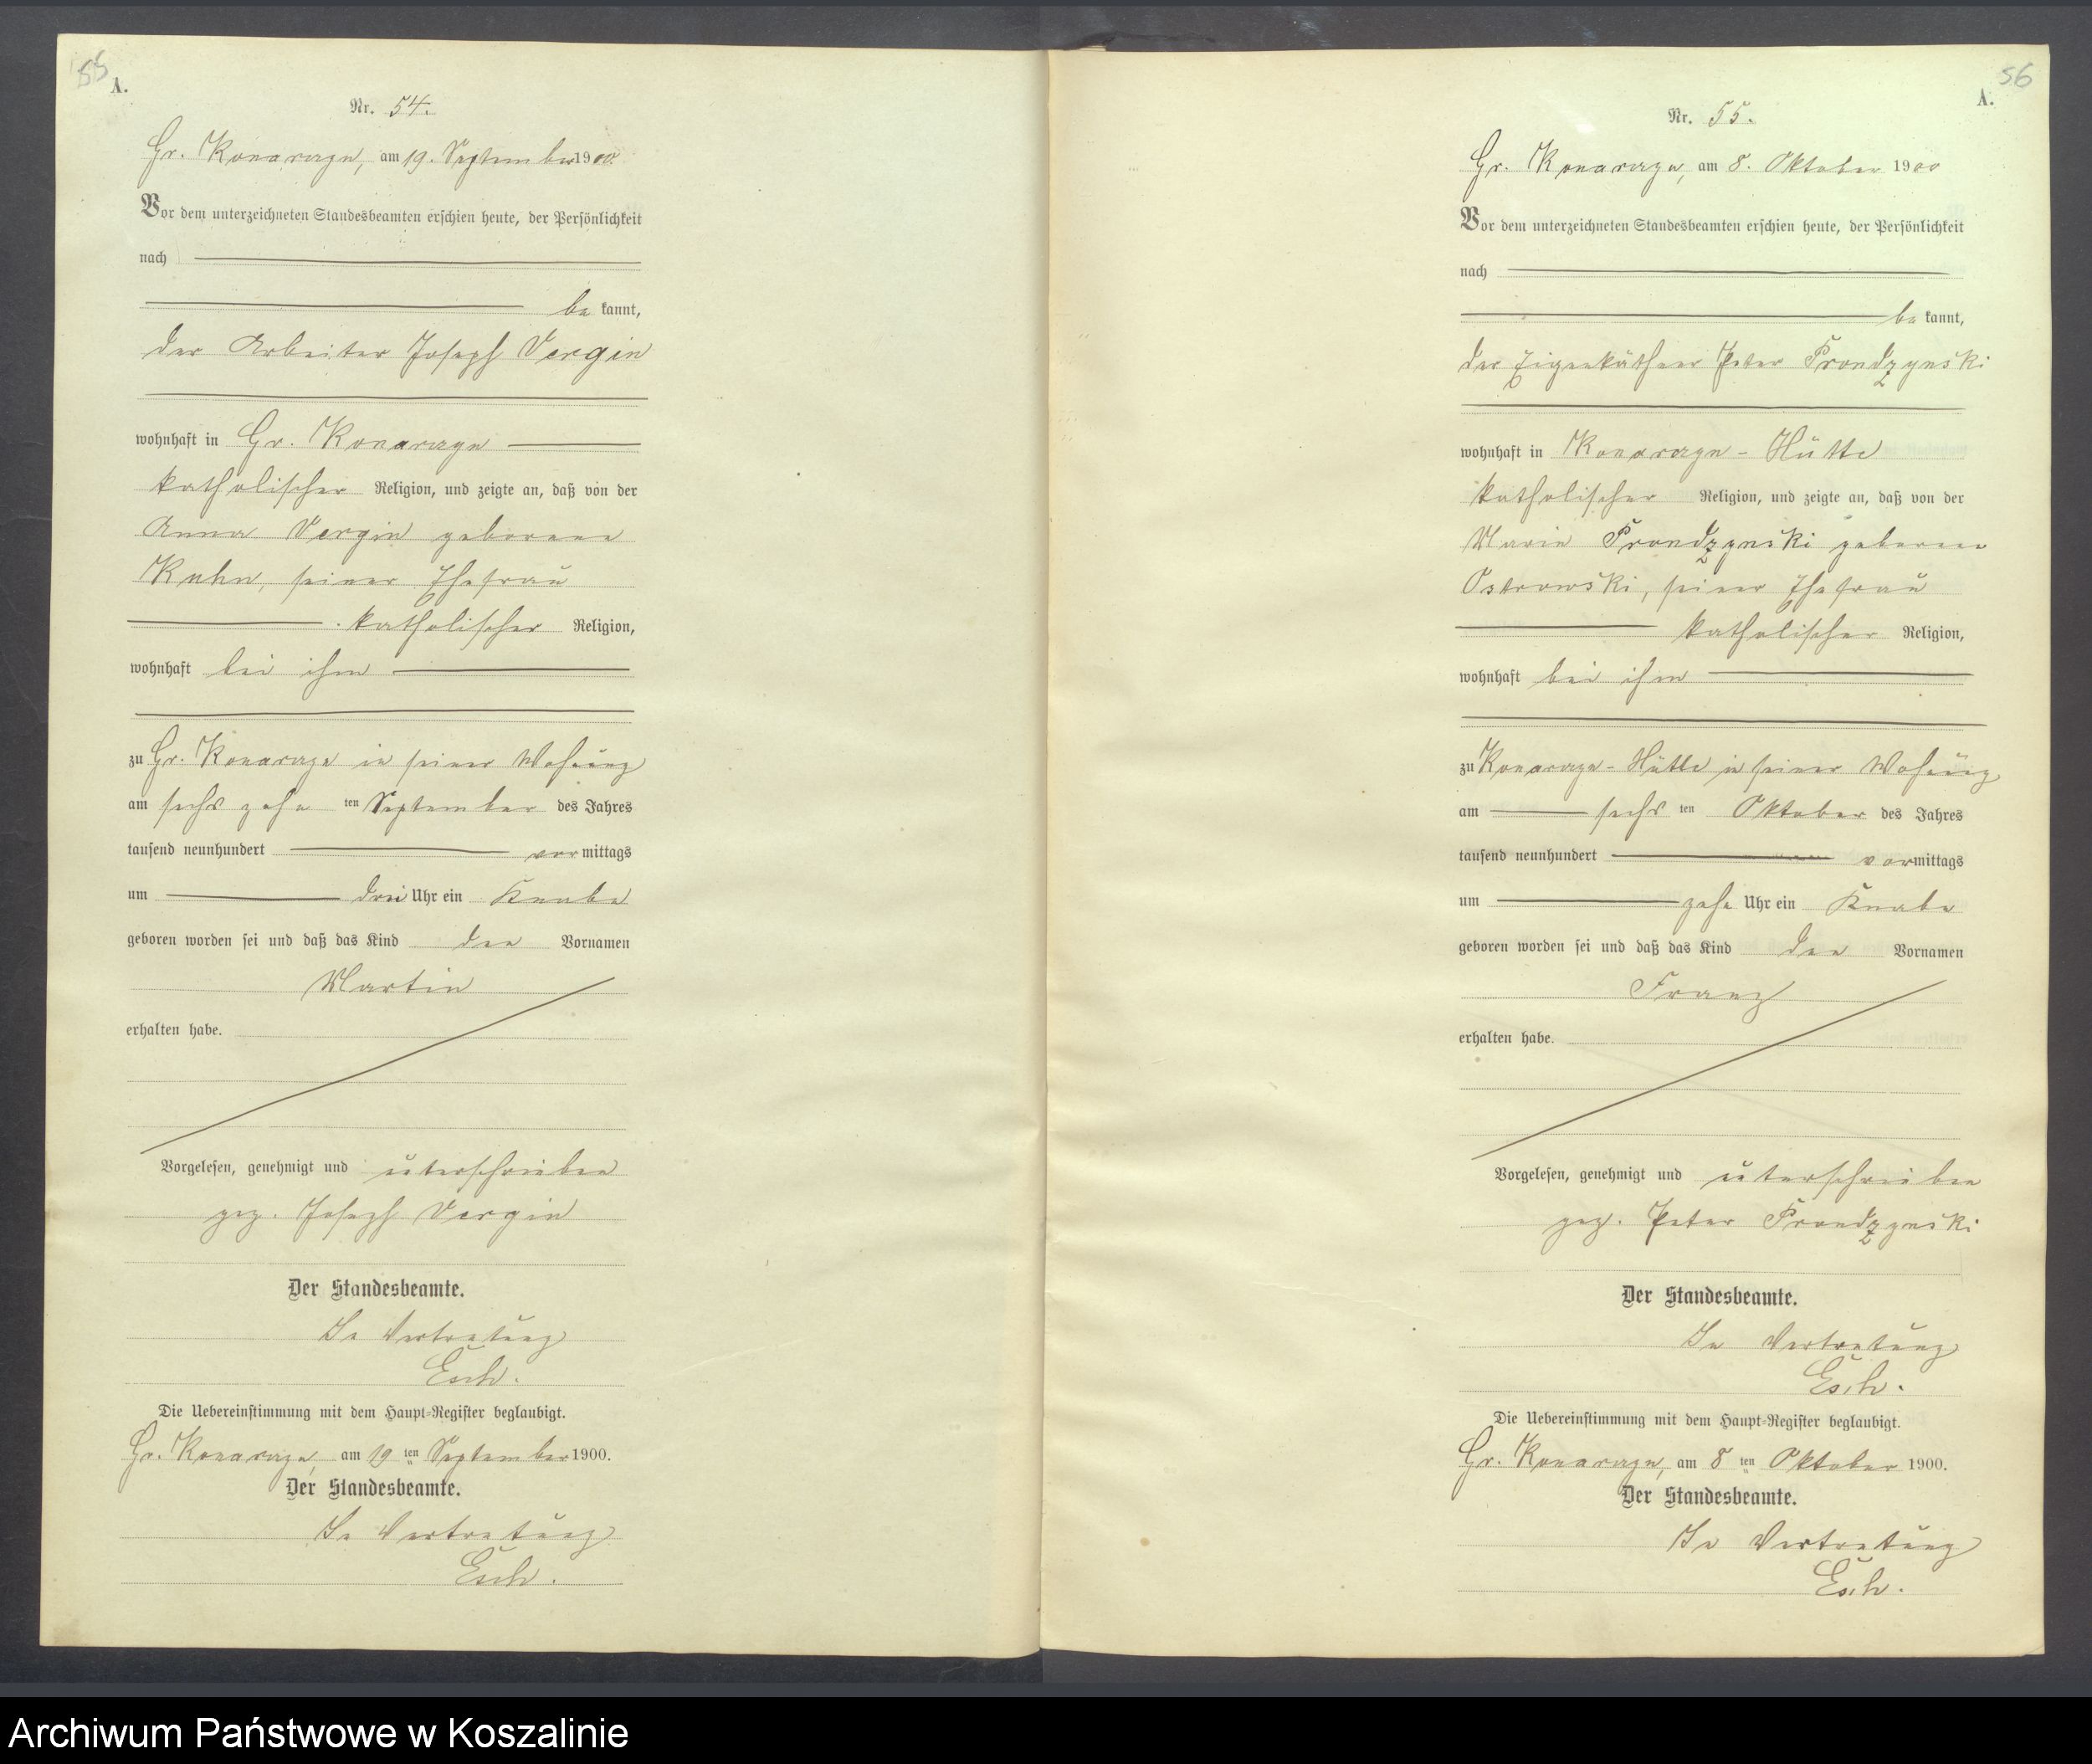 55
A.
Nr. 54.
Gr. Konarczyn, am 19. September 1900.
Vor dem unterzeichneten Standesbeamten erschien heute, der Persönlichkeit
nach
be kannt,
der Arbeiter Joseph Vergin
wohnhaft in Gr. Konarczyn
katholischer Religion, und zeigte an, daß von der
Anna Vergin geborene
Kuhn, seiner Ehefrau
katholischer Religion,
wohnhaft bei ihm
zu Gr. Konarczyn in seiner Wohnung
am sechszehn ten September des Jahres
tausend neunhundert vor mittags
um drei Uhr ein Knabe
geboren worden sei und daß das Kind den Vornamen
Martin
erhalten habe.
Vorgelesen, genehmigt und unterschrieben
gez. Joseph Vergin
Der Standesbeamte.
In Vertretung
Esch.
Die Uebereinstimmung mit dem Haupt-Register beglaubigt.
Gr. Konarczyn, am 19 ten September 1900.
Der Standesbeamte.
In Vertretung
Esch.
56
A.
Nr. 55.
Gr. Konarczyn, am 8. Oktober 1900
Vor dem unterzeichneten Standesbeamten erschien heute, der Persönlichkeit
nach
be kannt,
der Eigenkäthner Peter Prondzynski
wohnhaft in Konarczyn-Hütte
katholischer Religion, und zeigte an, daß von der
Marie Prondzynski geborene
Ostrowski, seiner Ehefrau
katholischer Religion,
wohnhaft bei ihm
zu Konarczyn-Hütte in seiner Wohnung
am sechs ten Oktober des Jahres
tausend neunhundert vormittags
um zehn Uhr ein Knabe
geboren worden sei und daß das Kind den Vornamen
Franz
erhalten habe.
Vorgelesen, genehmigt und unterschrieben
gez. Peter Prondzynski
Der Standesbeamte.
In Vertretung
Esch.
Die Uebereinstimmung mit dem Haupt-Register beglaubigt.
Gr. Konarczyn, am 8 ten Oktober 1900.
Der Standesbeamte.
In Vertretung
Esch.
Archiwum Państwowe w Koszalinie